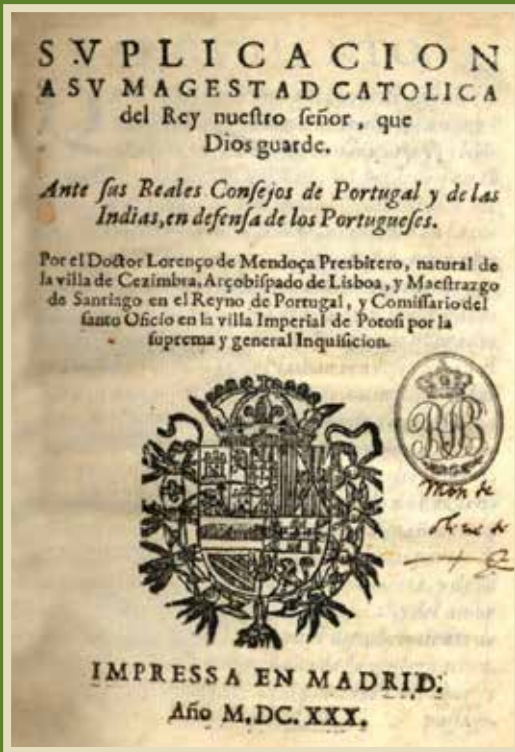 SVPLICACION
A SV MAGESTAD CATOLICA
del Rey nuestro señor, que
Dios guarde.
Ante sus Reales Consejos de Portugal y de las
Indias, en defensa de los Portugueses.
Por el Doctor Lorenço de Mendoça Presbitero, natural de
la villa de Cezimbra, Arçobispado de Lisboa, y Maestrazgo
de Santiago en el Reyno de Portugal, y Comissario del
santo Oficio en la villa Imperial de Potosi por la
suprema y general Inquisicion.
IMPRESSA EN MADRID.
Año M.DC.XXX.